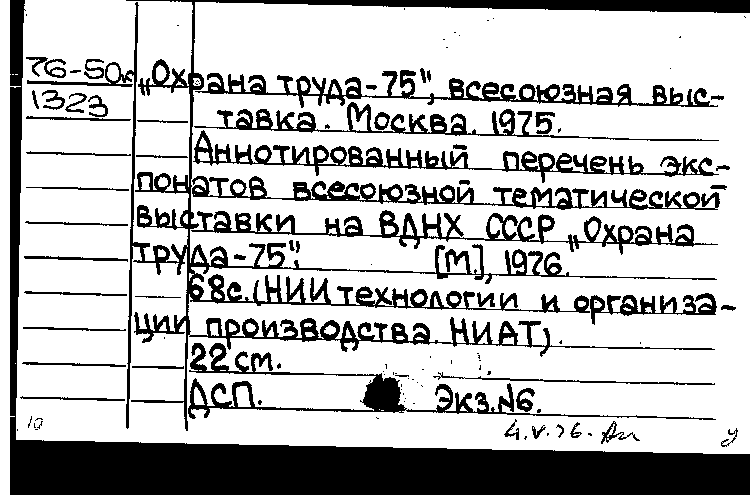 76-50к „Охрана труда-75", всесоюзная выс-
1323 тавка. Москва. 1975.
Аннотированный перечень экс-
понатов всесоюзной тематической
выставки на ВДНХ СССР „Охрана
труда-75". [М.], 1976.
68с. (НИИ технологии и организа-
ции производства. НИАТ).
22 см.
ДСП. Экз.№6.
10 4.V.76.